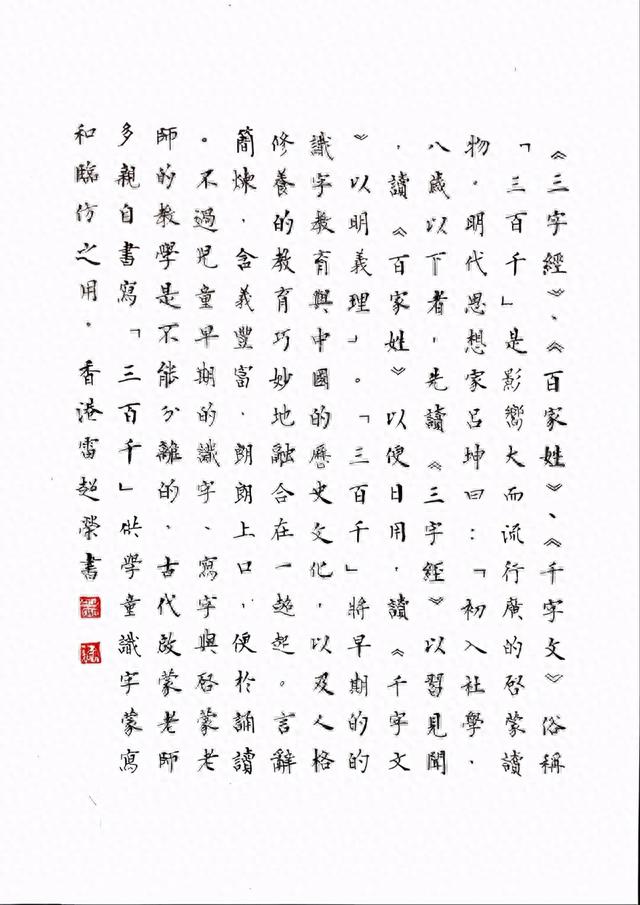 《三字經》、《百家姓》、《千字文》俗稱
「三百千」是影嚮大而流行廣的啓蒙讀
物。明代思想家呂坤曰：「初入社學，
八歲以下者，先讀《三字經》以習見聞
，讀《百家姓》以便日用，讀《千字文
》以明義理」。「三百千」將早期的
識字教育與中國的歷史文化，以及人格
修養的教育巧妙地融合在一超起。言辭
簡煉，含義豐富，朗朗上口，便於誦讀
。不過兒童早期的識字、寫字與啓蒙老
師的教學是不能分離的，古代啟蒙老師
多親自書寫「三百千」供學童識字蒙寫
和臨仿之用。香港雷超榮書